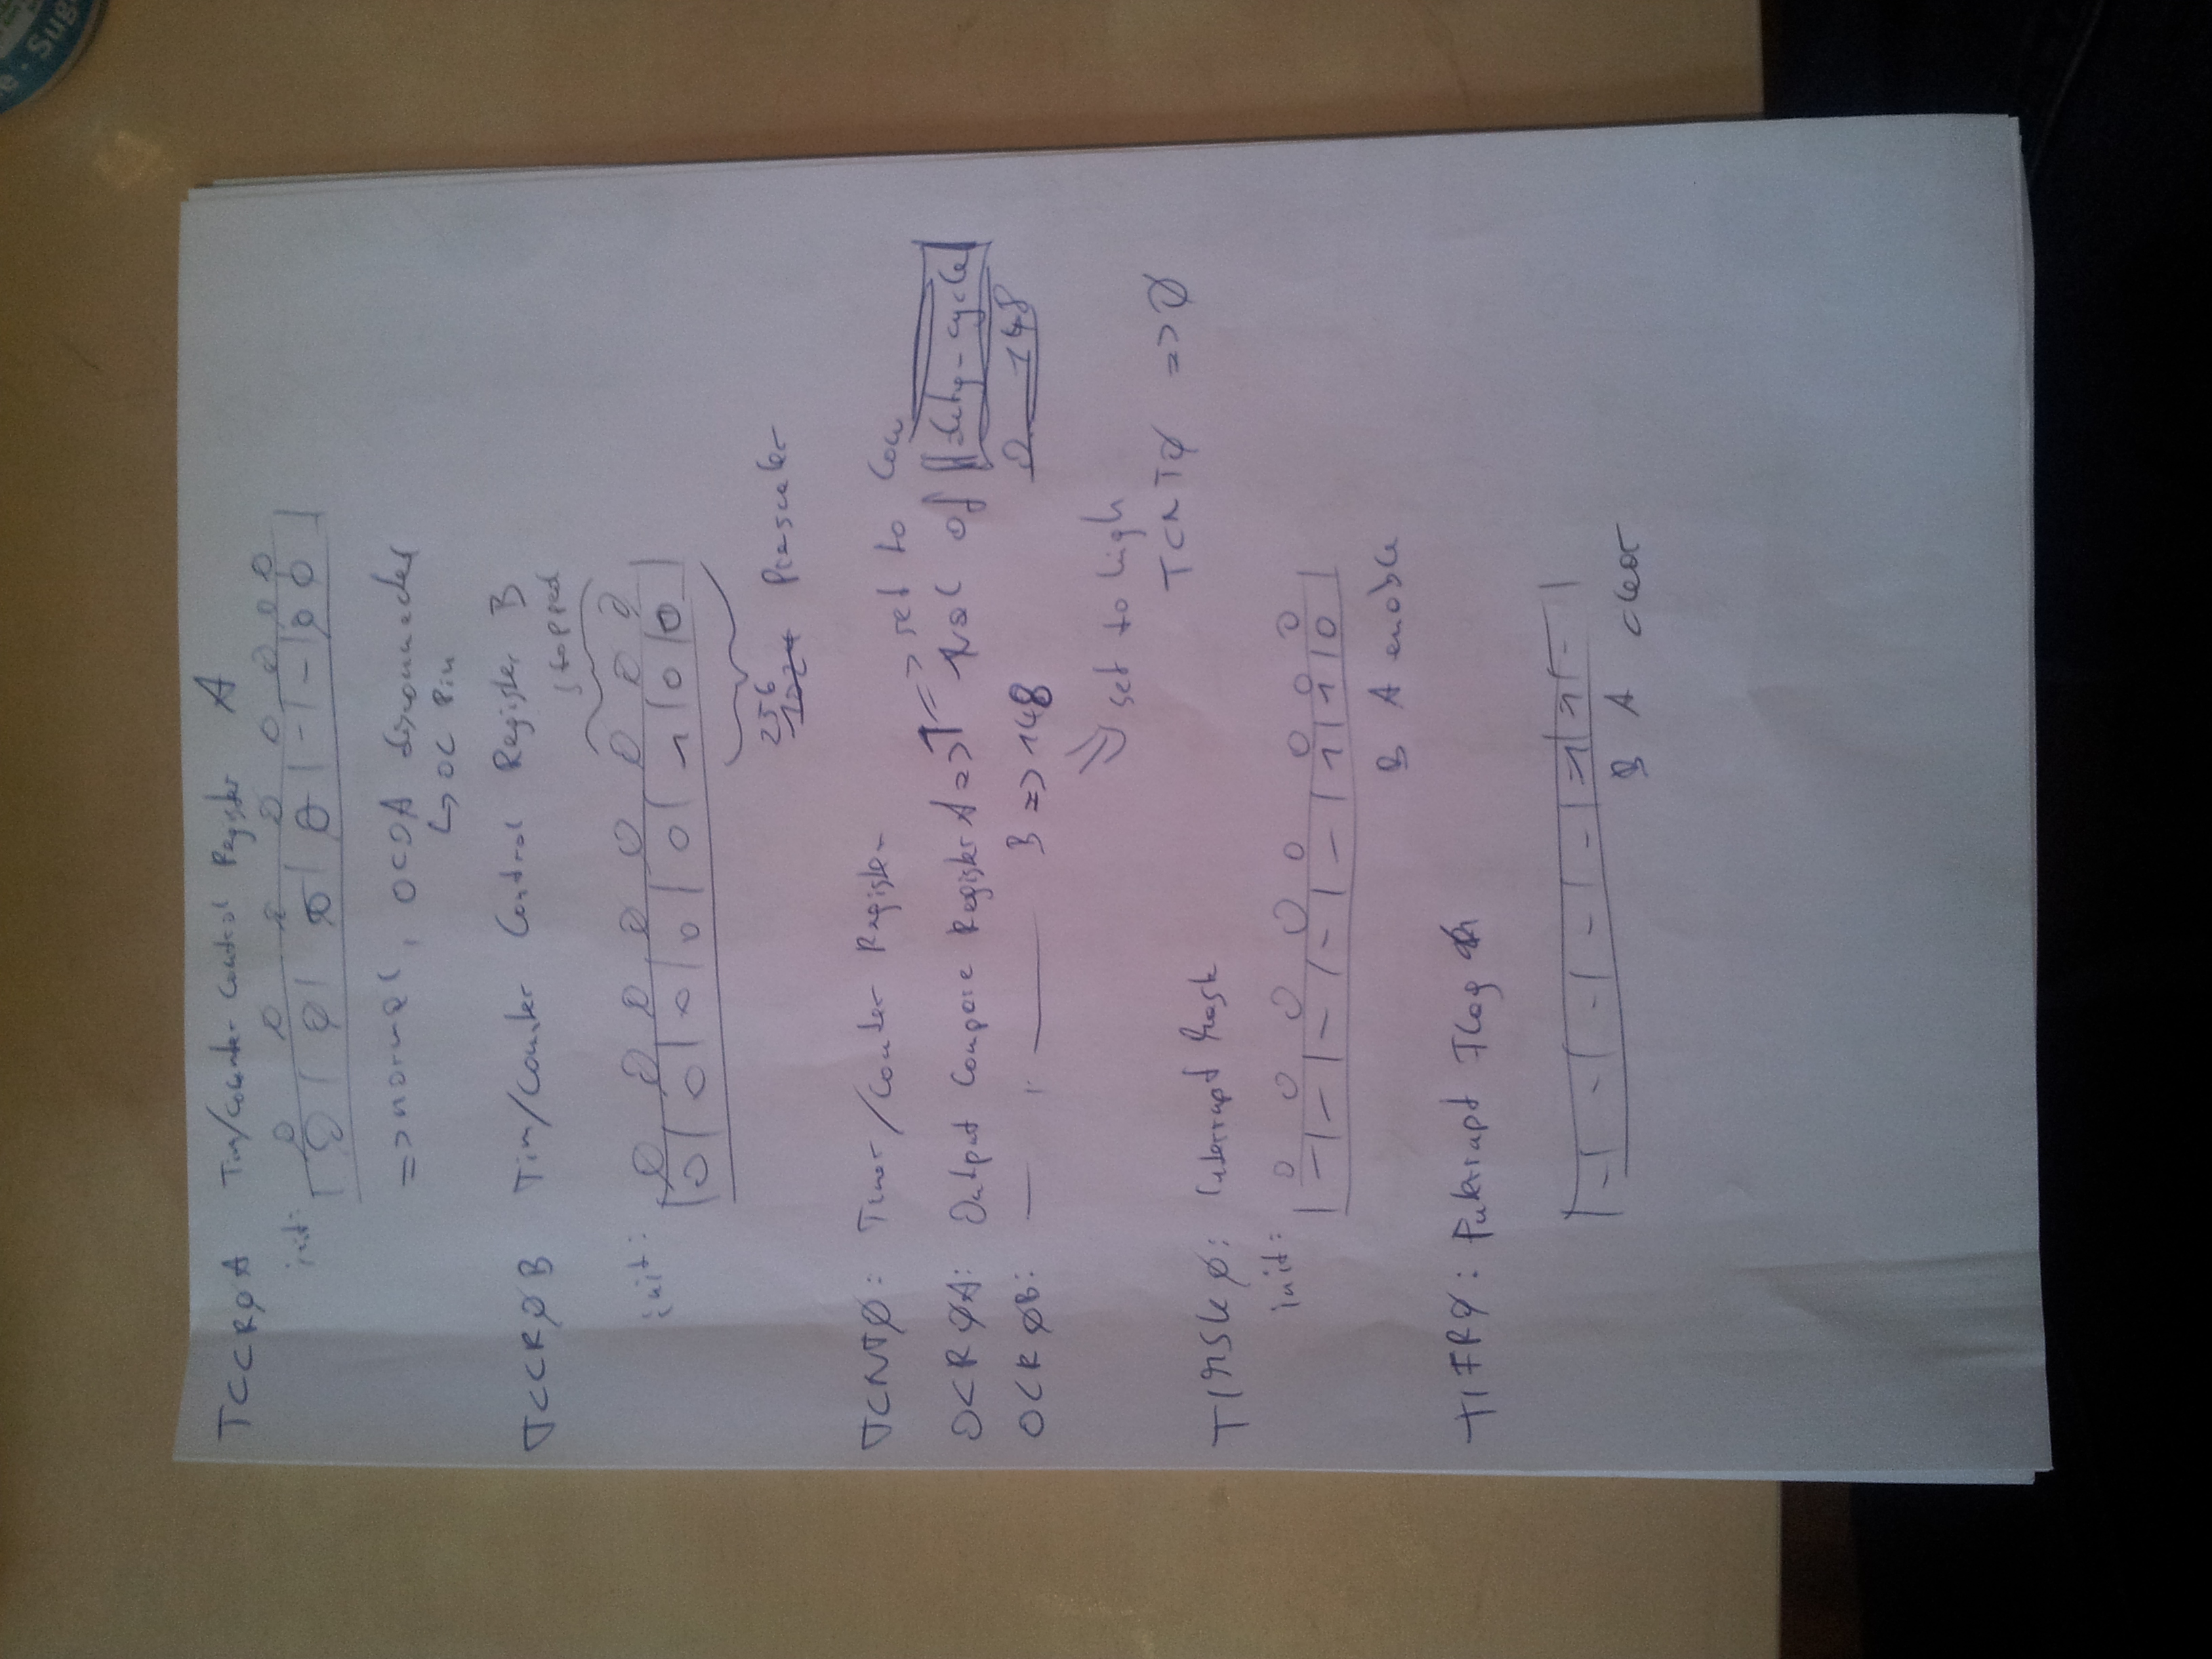 Sug
TCCRØA Tim/Counter Control Register A
init: 0 0 0 0 0 0 0 0
0 0 0 0 - - 0 0
=> normal, OC0A disconnected
↳ OC Pin
TCCRØB Tim/Counter Control Register B
stopped
init: 0 0 0 0 0 0 0 0
0 0 0 0 0 1 0 0
256
1024 Prescaler
TCNTØ: Timer/Counter Register
=> set to low
OCRØA: Output Compare Register A => 1 of duty-cycle
OCRØB: — " — B => 148 0 148
set to high
TCNTØ => Ø
TIMSKØ: Interrupt Mask
init: 0 0 0 0 0 0 0 0
- - - - - 1 1 0
B A enable
TIFRØ: Interrupt Flag
- - - - - 1 1 -
B A clear